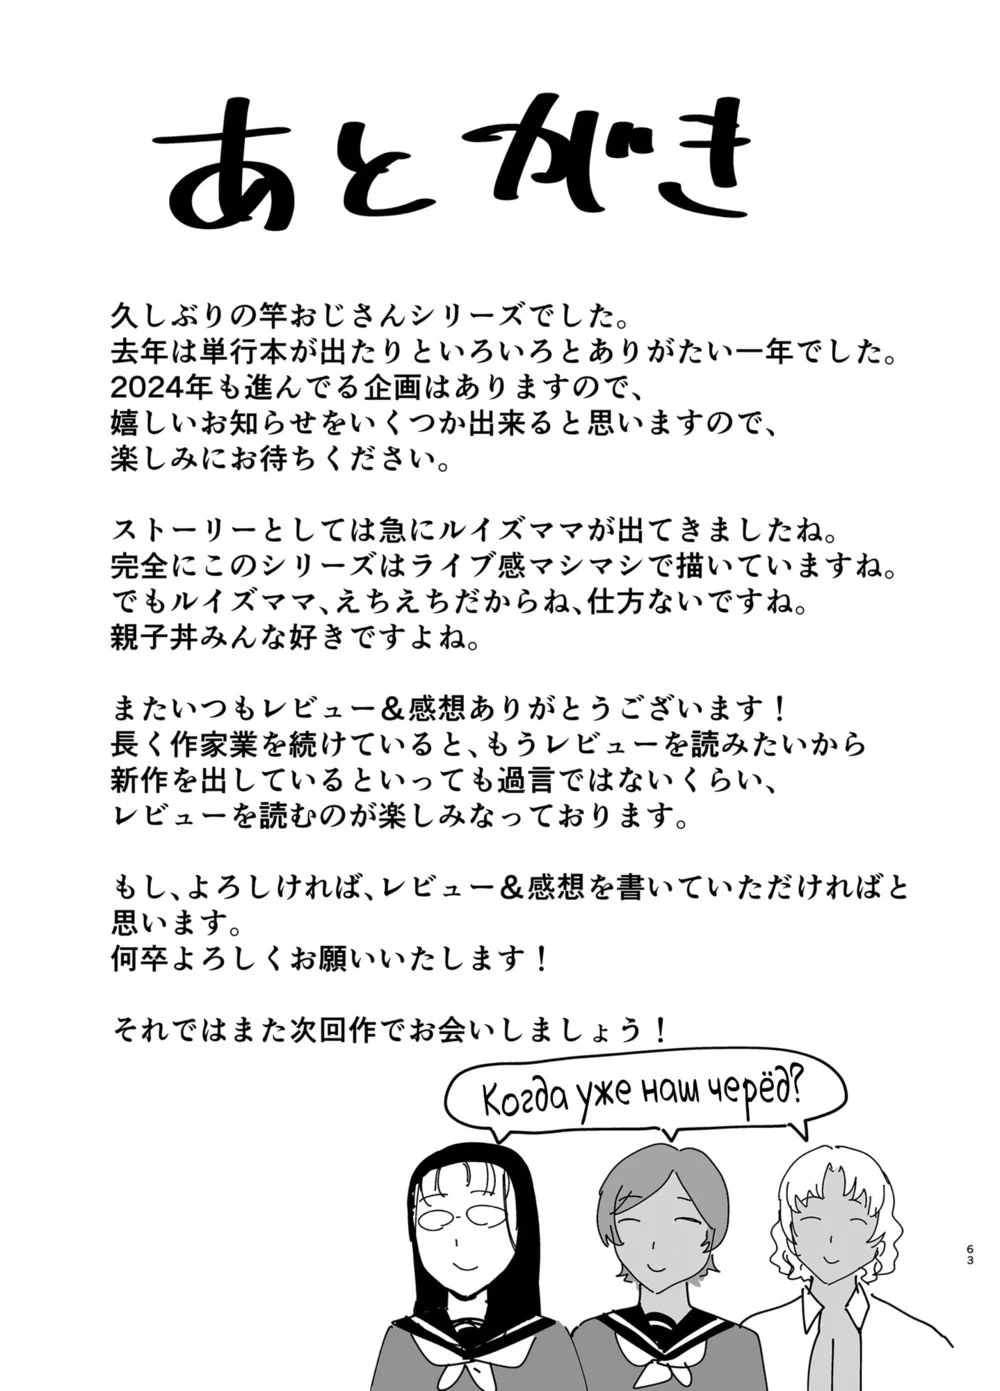 あとがき
久しぶりの竿おじさんシリーズでした。
去年は単行本が出たりといろいろとありがたい一年でした。
2024年も進んでる企画はありますので、
嬉しいお知らせをいくつか出来ると思いますので、
楽しみにお待ちください。
ストーリーとしては急にルイズママが出てきましたね。
完全にこのシリーズはライブ感マシマシで描いていますね。
でもルイズママ、えちえちだからね、仕方ないですね。
親子丼みんな好きですよね。
またいつもレビュー＆感想ありがとうございます！
長く作家業を続けていると、もうレビューを読みたいから
新作を出しているといっても過言ではないくらい、
レビューを読むのが楽しみなっております。
もし、よろしければ、レビュー＆感想を書いていただければと
思います。
何卒よろしくお願いいたします！
それではまた次回作でお会いしましょう！
Когда уже наш черёд?
63